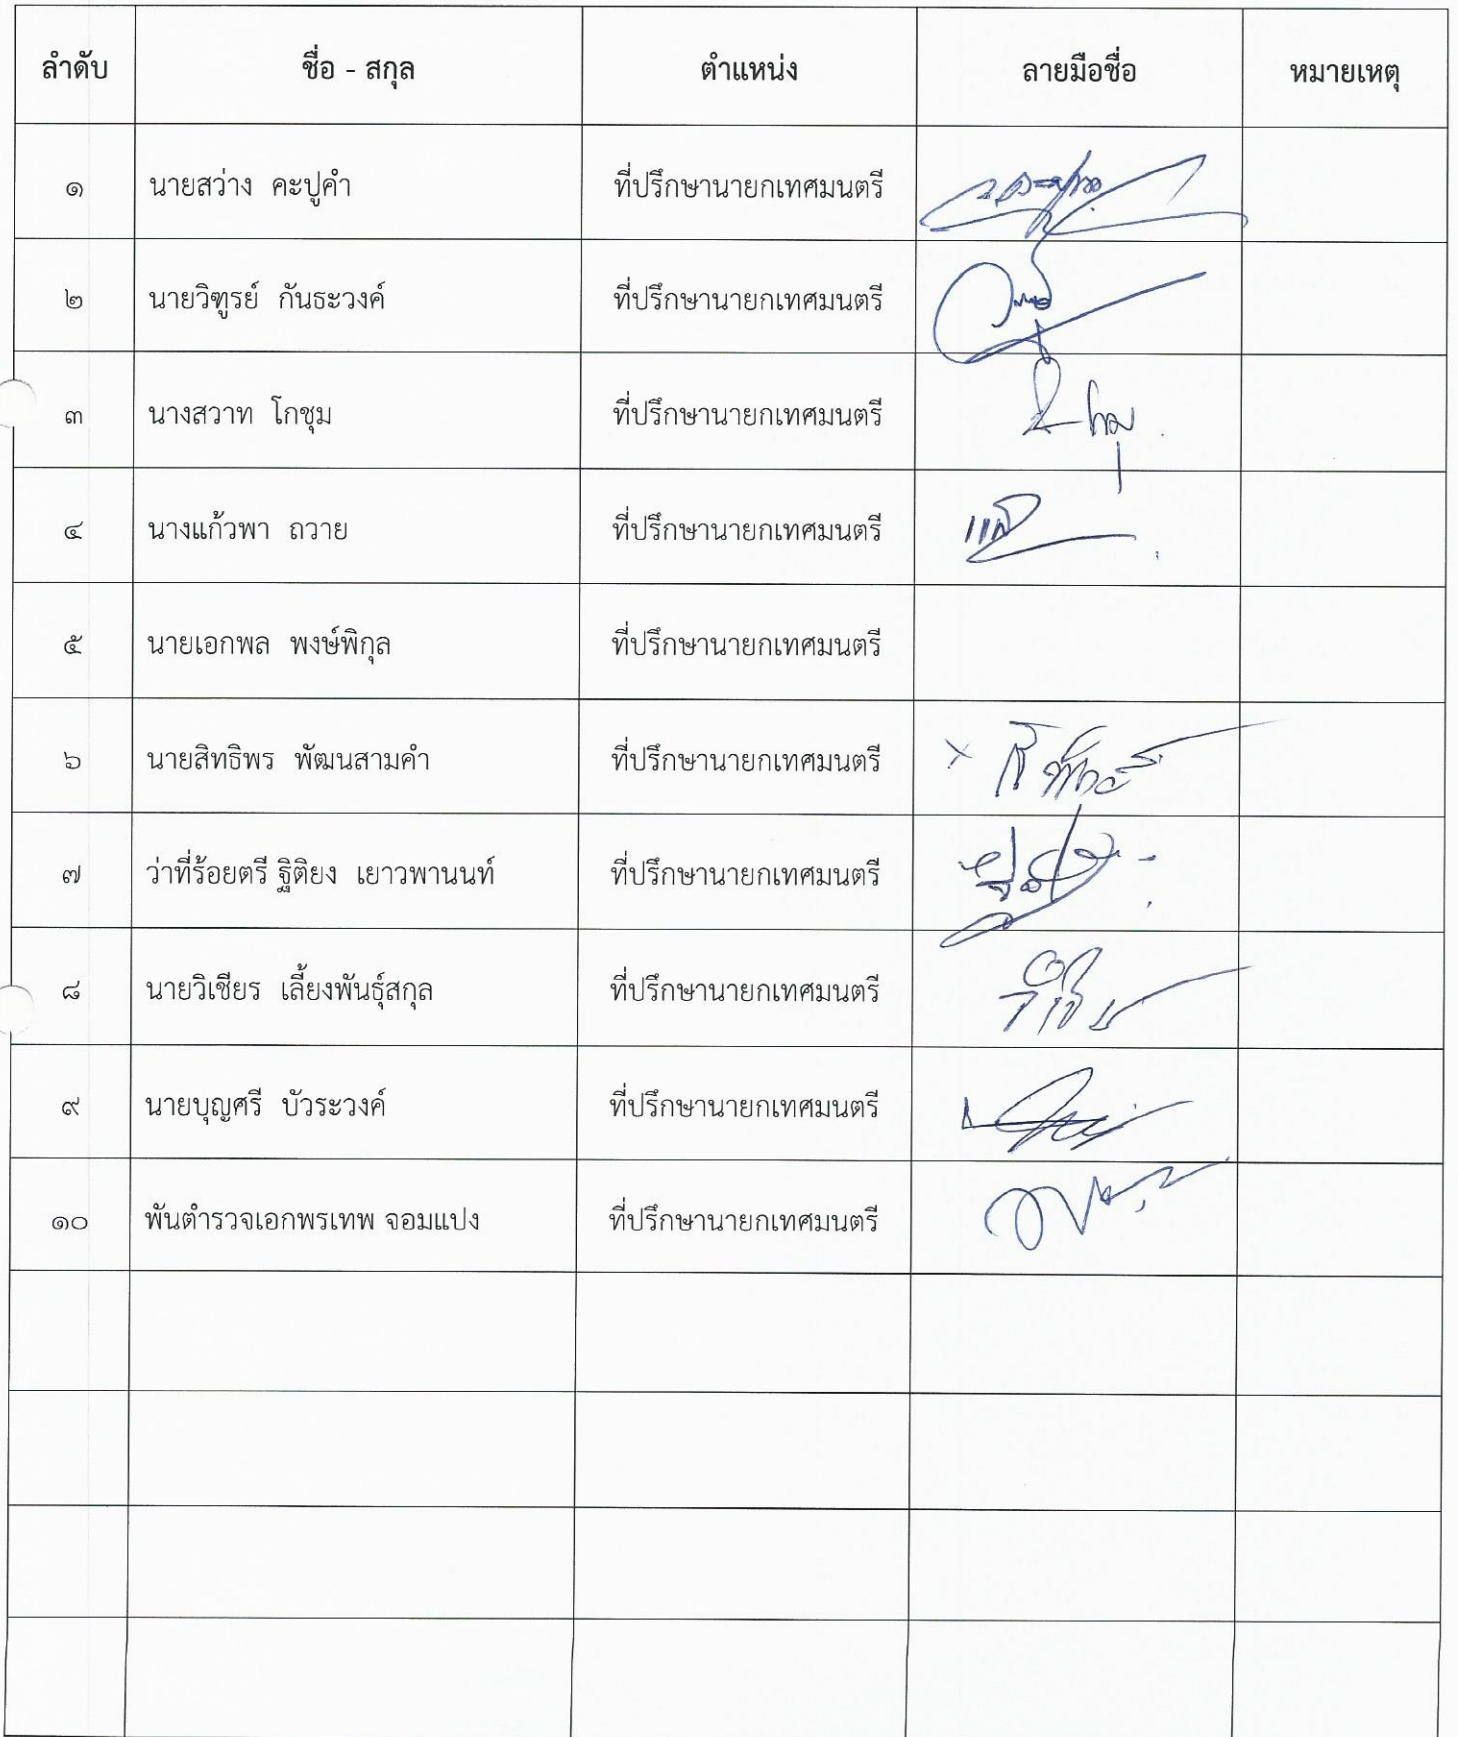 ลำดับ ชื่อ - สกุล ตำแหน่ง ลายมือชื่อ หมายเหตุ
๑ นายสว่าง คะปูคำ ที่ปรึกษานายกเทศมนตรี
๒ นายวิฑูรย์ กันธะวงค์ ที่ปรึกษานายกเทศมนตรี
๓ นางสวาท โกชุม ที่ปรึกษานายกเทศมนตรี
๔ นางแก้วพา ถวาย ที่ปรึกษานายกเทศมนตรี
๕ นายเอกพล พงษ์พิกุล ที่ปรึกษานายกเทศมนตรี
๖ นายสิทธิพร พัฒนสามคำ ที่ปรึกษานายกเทศมนตรี
๗ ว่าที่ร้อยตรี ฐิติยง เยาวพานนท์ ที่ปรึกษานายกเทศมนตรี
๘ นายวิเชียร เลี้ยงพันธุ์สกุล ที่ปรึกษานายกเทศมนตรี
๙ นายบุญศรี บัวระวงค์ ที่ปรึกษานายกเทศมนตรี
๑๐ พันตำรวจเอกพรเทพ จอมแปง ที่ปรึกษานายกเทศมนตรี